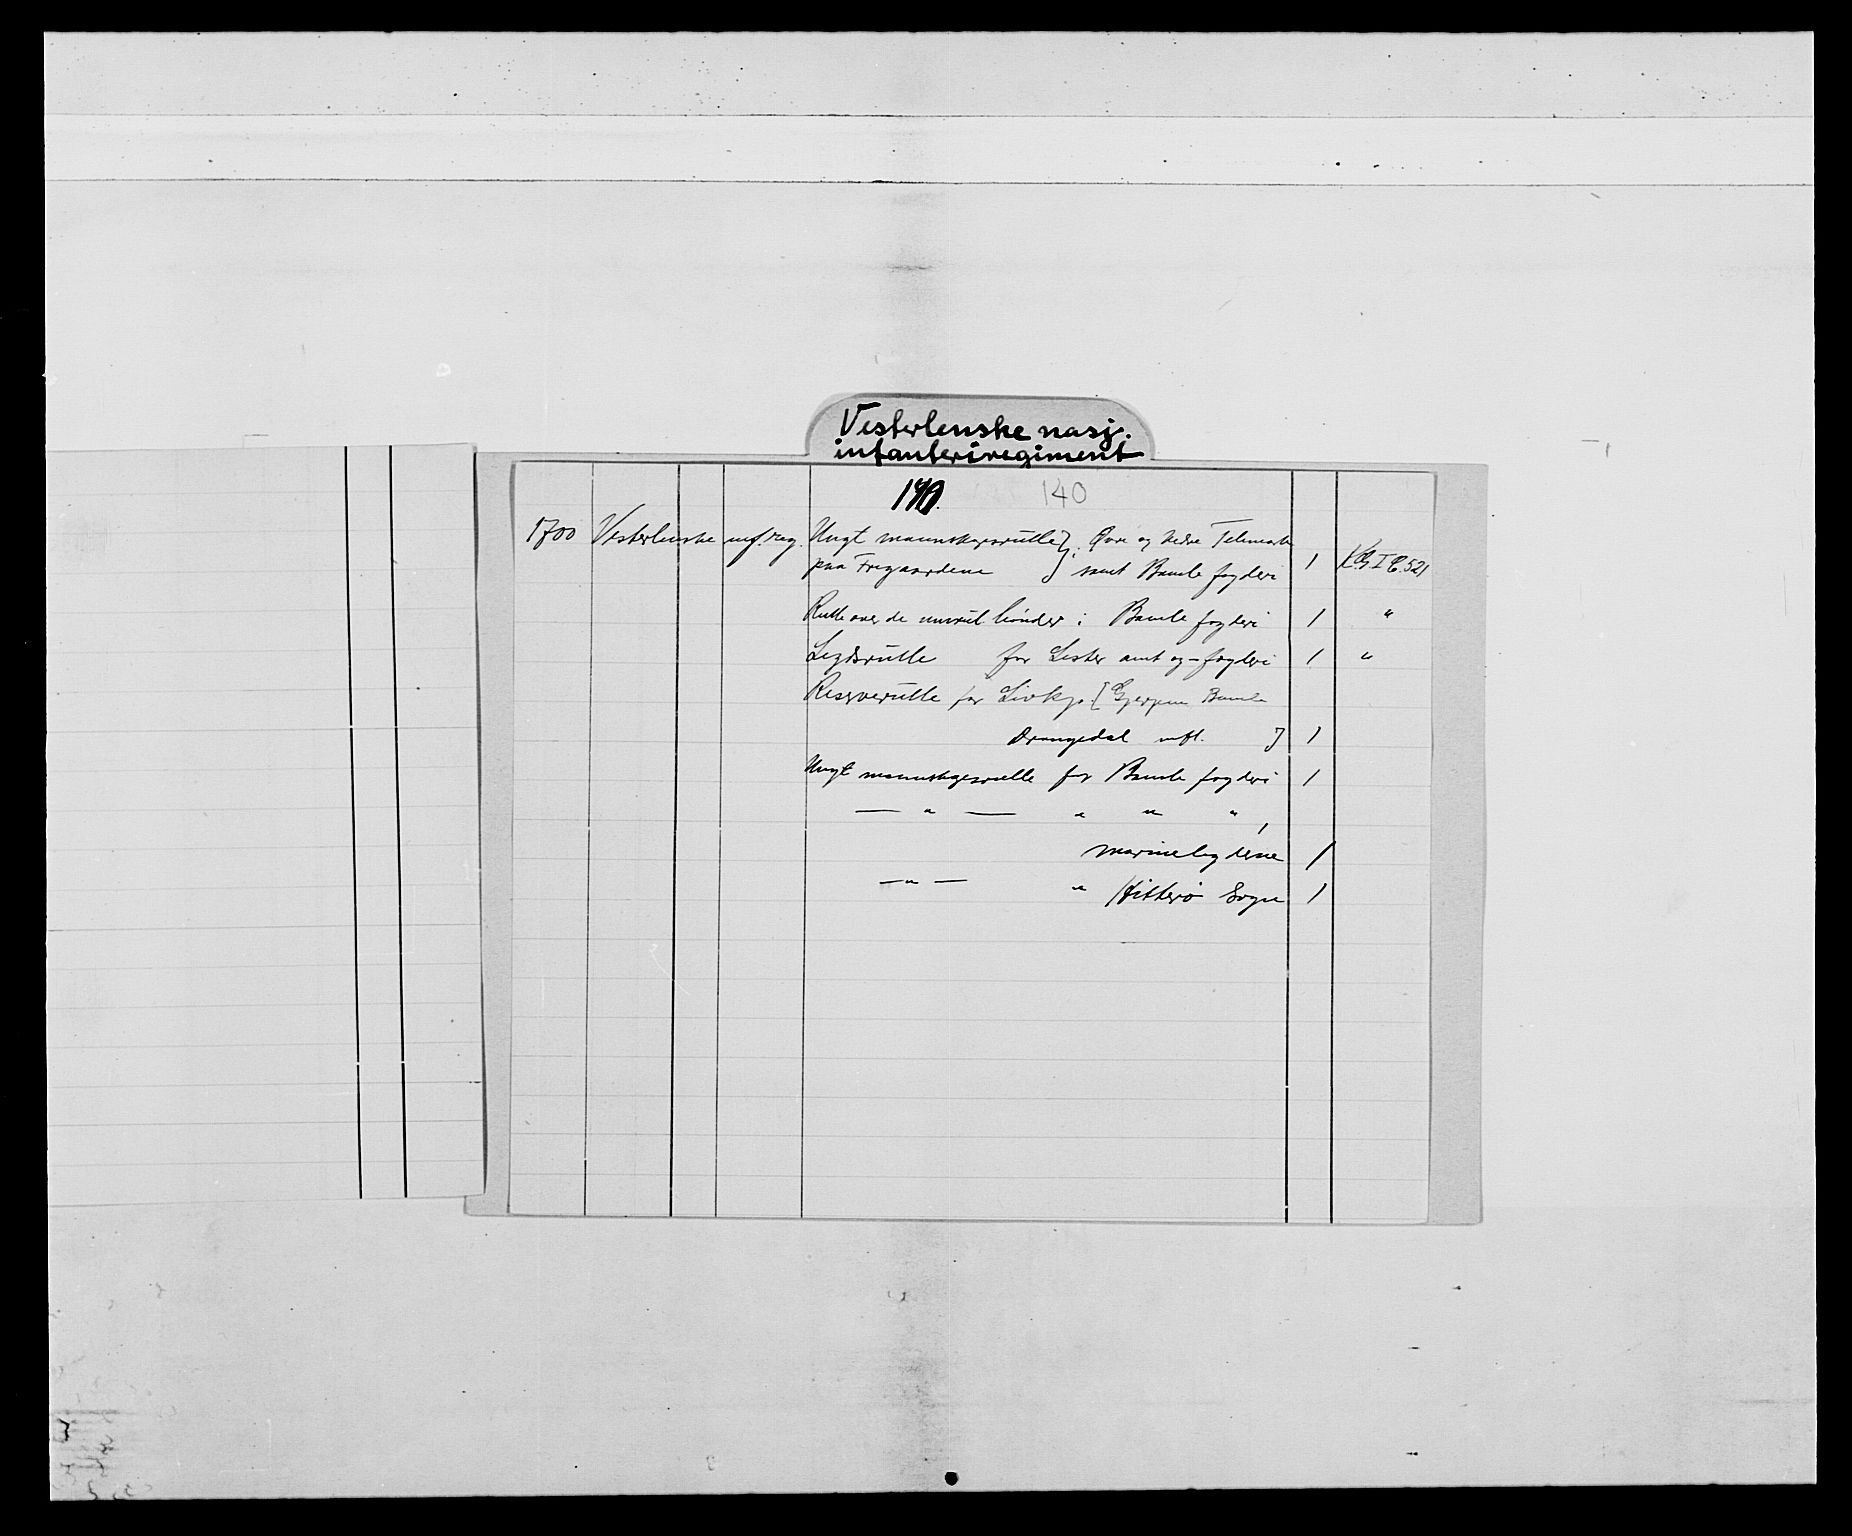 Vesterlenske nasj.
infanteriregiment
140. 140
1700 Vesterlenske inf. reg. Ungt mannskapsrulle } i Øvre og Nedre Telemark
paa Fregaardene } samt Bamle fogderi 1 KG I C. 521
Rulle over de unrul bönder i Bamle fogderi 1 "
Legdsrulle for Lister amt og - fogderi 1 "
Reserverulle for Livkp. [Gjerpen Bamle
Drangedal mfl. ] 1
Ungt mannskapsrulle for Bamle fogderi 1
— " — " " " ,
Marinelegdene 1
— " — " Hitterö Sogn 1